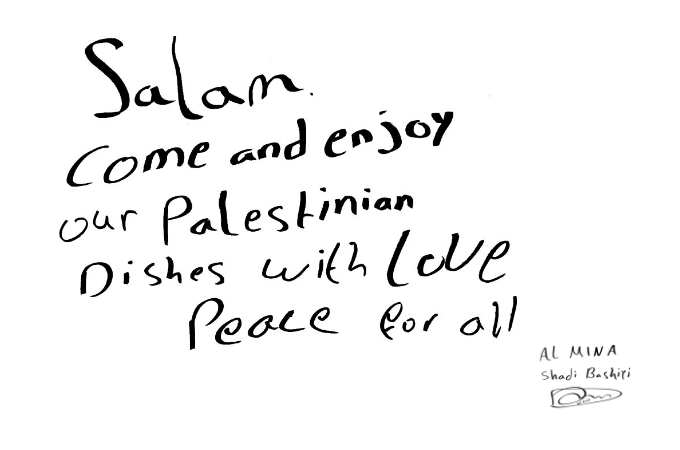 Salam.
Come and enjoy
our Palestinian
Dishes with Love
Peace for all
AL MINA
Shadi Bashiti